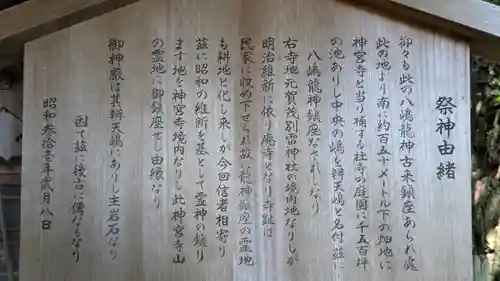 祭神由緒
抑々此の八嶋龍神古来鎮座あられ處
此の地より南に約百五十メートル下の畑地に
神宮寺と当り補する社寺の庭園に千五百坪
の池ありし中央の嶋を辨天嶋と名付茲に
八嶋龍神鎮座なされしなり
右寺地元賀茂別雷神社の境内地なりしが
明治維新に依り廃寺となり寺趾は
民家に收め下せられ故に龍神鎮座の霊地
も耕地と化し来しが今回信者相寄り
茲に昭和の維新を基として霊神の鎮り
ます地を神宮寺境内なりし此神宮寺山
の霊地に御鎮座せし由縁なり
御神巌は其辨天嶋にありし主岩石なり
因て茲に後古に傳なるなり
昭和参拾壱年貳月八日